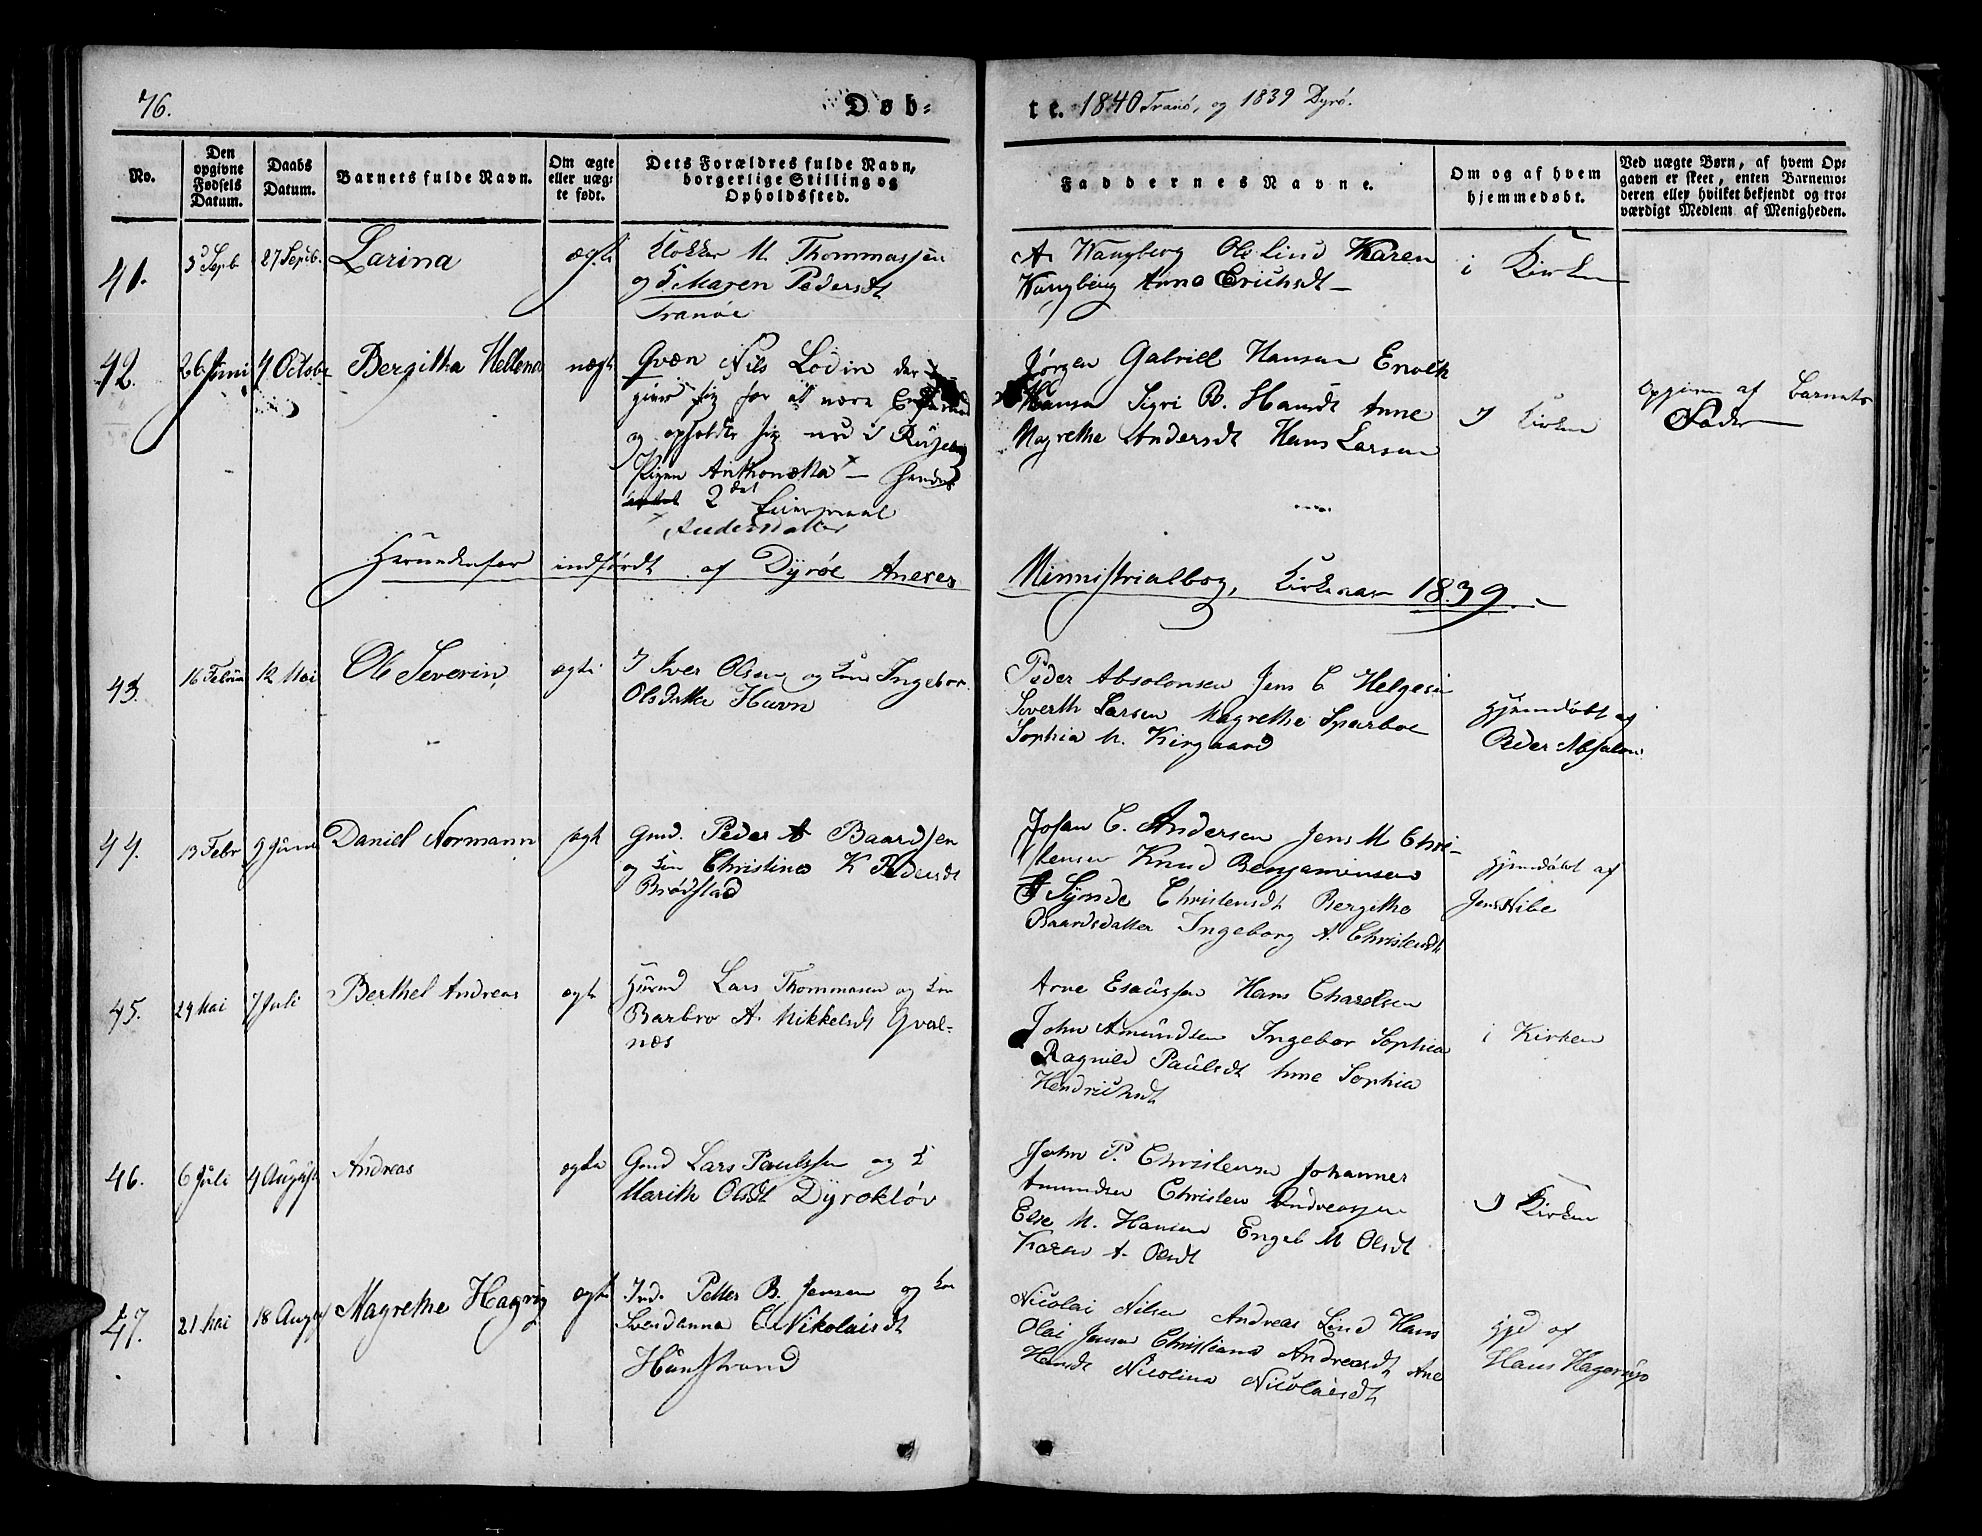 76.
Døb=
te. 1840 Tranö, og 1839 Dyrö.
No.
Den opgivne Fødsels Datum.
Daabs Datum.
Barnets fulde Navn.
Om ægte eller uæg- te født.
Dets Forældres fulde Navn, borgerlige Stilling og Opholdssted.
Faddernes Navne.
Om og af hvem hjemmedøbt.
Ved uægte Børn, af hvem Op- gaven er skeet, enten Barnemo- deren eller hvilket bekjendt og tro- værdigt Medlem af Menigheden.
41.
3 Septb
27 Septb.
Larina
ægte
Klokker M. Thommassen
og K. Maren Pedersdt
Tranöe
A. Wangberg Ole Lind Karen
Wangberg Anna Erichsdt
i Kirken
42.
26 Juni
4 Octobr
Bergitha Hellena
uægt
Qvæn Nils Lodin der
giver sig for at være
og opholder sig ved
Pigen Anthonætta × hendes
2det Leiermaal
× Andersdatter
Jørgen Gabriel Hansen Enoch
Hansen Sigri B. Hansdt Anne
Magrethe Andersdt Hans Larsen
I Kirken
Opgiven af Barnets
Fader
Herunderfor indfördt af Dyröe Anexes
Ministrialbog, Kirkeaar 1839.
43.
16 Februar
12 Mai
Ole Severin
ægte
I Iver Olsen og Kone Ingebor
Olsdatter Havn
Peder Absolonsen Jens C Helgesen
Siverth Larsen Magrethe Sparboe
Sophia M. Kirgaard
Hjemdöbt af
Peder Absalon
44.
13 Febr
9 Juni
Daniel Normann
ægte
Gmd. Peder A Baardsen
og Kone Christina K Pedersdt
Brödstad
Johan C. Andersen Jens M Chri-
stensen Knud Benjaminsen
Synde Christensdt Bergethe
Baardsdatter Ingeborg A. Christensdt
Hjemdöbt af
Jens Hibe
45.
29 Mai
7 Juli
Berthel Andreas
ægte
Huusmd Lars Thommasen og Kone
Barbro A. Mikkelsdt Qval-
næs
Arne Esaiassen Hans Charelsen
John Amundsen Ingebor Sophia
Ragnild Paulsdt Anne Sophia
Hendrichsdt
i Kirken
46.
6 Juli
4 August
Andreas
ægte
Gmd Lars Paulssen og K
Marith Olsdt Dyröklöv
John P. Christensen Johannes
Amundsen Christen Andreassen
Else M. Hansen Engeb M Olsdt
Karen A. Olsdt
I Kirken
47.
21 Mai
18 August
Magrethe Hagrig
ægte
Ind. Petter B. Jensen og Kone
Swerdanna E Nikolaisdt
Hunstrand
Nicolai Nilsen Andreas Lind Hans
Olai Jensen Christiana Andreasdt Ane
Hansdt Nicolina Nicolaisdt
Hjd af
Hans Hagerup